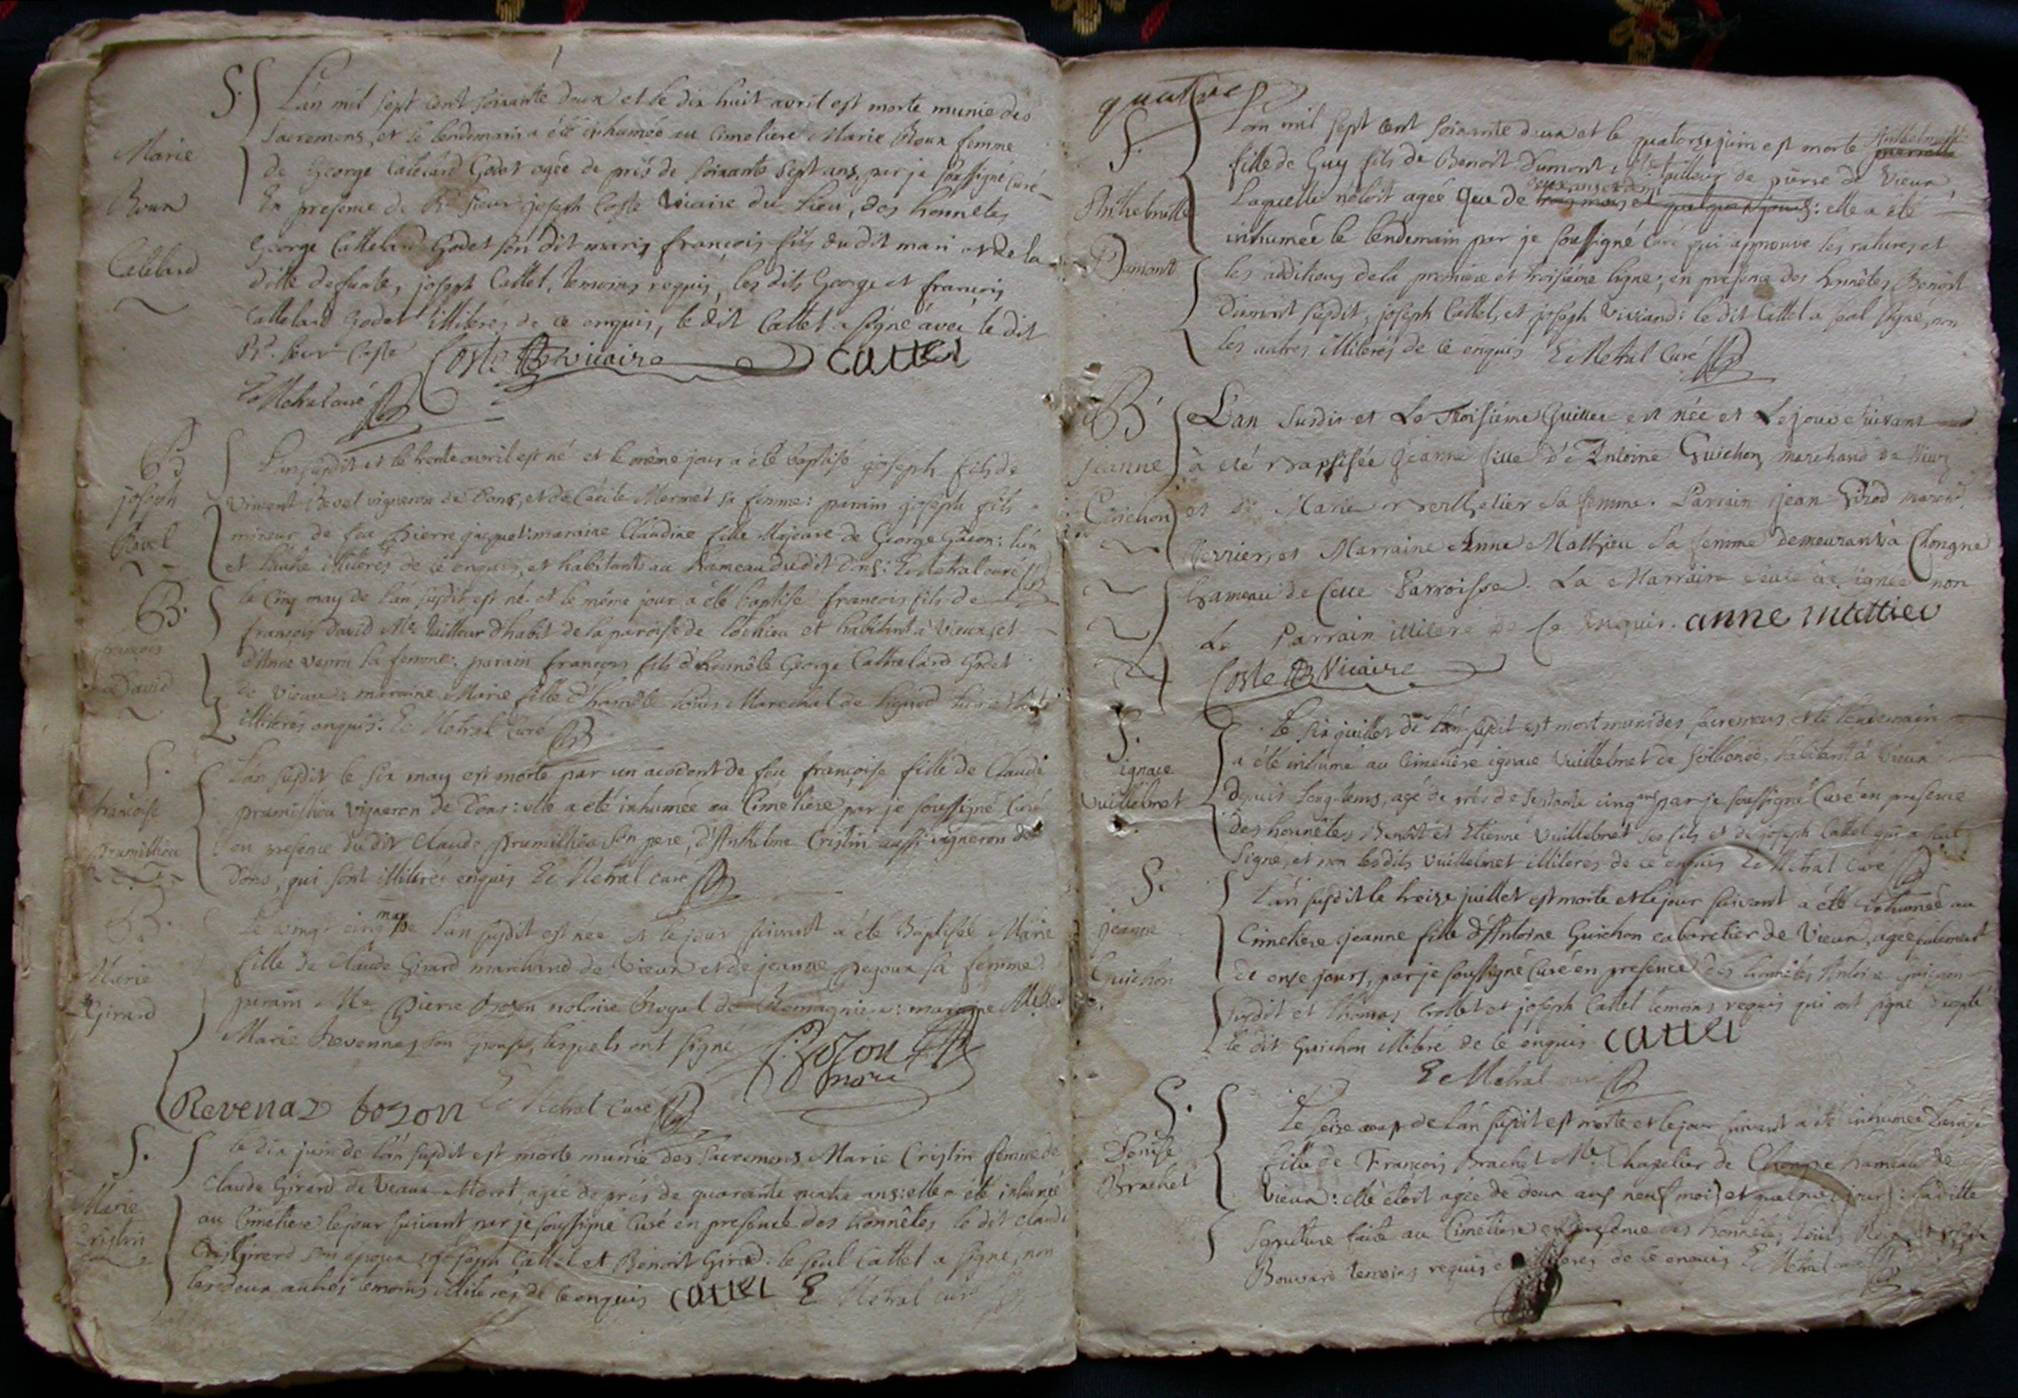 S.
Marie
Roux
Catelard
L'an mil sept cent soixante deux et le dix huit avril est morte munie des
Sacremens, et le lendemain a été inhumée au Cimetiere Marie Roux femme
de George Catelard Godet agée de près de soixante sept ans, par je soussigné Curé
En presence de Rd. sieur joseph Coste Vicaire du Lieu, des honnêtes
George Cattelard Godet son dit mari, françois fils du dit mari et de la
ditte defunte, joseph Cattet, temoins requis, les dits George et françois
Cattelard Godet illiteres de ce enquis, le dit Cattet a signé avec le dit
Rd. sieur Coste Coste Vicaire cattet
E Metral curé
B
joseph
Revel
L'an susdit et le trente avril est né et le même jour a été baptisé joseph fils de
Vincent Revel vigneron de Dons, et de Cécile Mermet sa femme: parain joseph fils
mineur de feu Pierre jacquet: maraine Claudine fille Majeure de George : l'un
et l'autre illiteres de ce enquis, et habitant au hameau dudit Dons: E Metral curé
B.
françois
David
le Cinq may de l'an susdit est né et le même jour a été baptisé françois fils de
françois David Me. tailleur d'habit de la paroisse de Lochieu et habitant à Vieux, et
d'Anne sa femme: parain françois fils d'honnête George Cathelard Godet
de Vieux: maraine Marie fille d'honnête Louis Marechal de
illiteres enquis. E Metral Curé
S.
francoise
prumillieu
L'an susdit le six may est morte par un accident de feu françoise fille de Claude
prumillieu vigneron de Dons: elle a été inhumée au Cimetière par je soussigné Curé
en presence du dit Claude prumillieu son pere, d'Anthelme Cristin aussi vigneron de
Dons, qui sont illiteres enquis E Metral curé
B.
Marie
Girard
Le vingt cinq may de l'an susdit est née et le jour suivant a été Baptisée Marie
fille de Claude Girard marchand de Vieux et de jeanne sa femme
parain Me Pierre Bozon notaire Royal de Romagnieu: maraine
Marie Revenaz son epouse, lesquels ont signé P. bozon
Revenaz bozon E Metral Curé
S.
Marie
Cristin
le dix juin de l'an susdit est morte munie des Sacremens Marie Cristin femme de
Claude Girard de Vieux, agée de près de quarante quatre ans: elle a été inhumée
au Cimetière le jour suivant par je soussigné Curé en presence des honnêtes le dit Claude
Girard son epoux, joseph Cattet et Benoit Girard: le seul Cattet a signé, non
les deux autres temoins illiteres de ce enquis cattet E Metral curé
quatre
S.
Anthelmette
Dumont
L'an mil sept cent soixante deux et le quatorse juin est morte Anthelmette
fille de Guy fils de Benoit Dumont, Me. tailleur de pierre de Vieux,
Laquelle n'étoit agée que de : elle a été
inhumée le lendemain par je soussigné Curé qui approuve les ratures et
les additions de la première et troisième ligne; en presence des honnêtes Benoit
Dumont susdit, joseph Cattet, et joseph Viviand: le dit Cattet a seul signé, non
les autres illiterés de ce enquis E Metral Curé
B
jeanne
Guichon
L'an susdit et Le Troisième Juillet est née et Le jour suivant
à été Baptisée Jeanne fille d'Antoine Guichon marchand de Vieux
et de Marie Berthelier sa femme. Parrain jean Girod
et Marraine Anne Mathieu sa femme demeurant à Chongne
hameau de Cette Parroisse. La Marraine seule a signé non
Le Parrain illitere de Ce Enquis. anne mattieu
Coste Vicaire
S.
ignace
Vuillelmet
Le six juillet de l'an susdit est mort muni des sacremens et le lendemain
a été inhumé au Cimetière ignace Vuillelmet de habitant à Vieux
depuis Long-tems, agé de près de septante cinq ans par je soussigné Curé en presence
des honnêtes Benoit et Etienne Vuillelmet ses fils et de joseph Cattet qui a seul
signé, et non les dits Vuillelmet illiteres de ce enquis E Metral Curé
S.
jeanne
Guichon
L'an susdit le treize juillet est morte et le jour suivant a été inhumée au
Cimetière jeanne fille d'Antoine Guichon cabaretier de Vieux, agée seulement
de onse jours, par je soussigné Curé en presence des honnêtes Antoine guichon
susdit et thomas trollet et joseph Cattet temoins requis qui ont signé excepté
le dit Guichon illitéré de ce enquis cattet
E Metral curé
S.
Denise
Brachet
Le seize aoust de l'an susdit est morte et le jour suivant a été inhumée Denise
fille de François Brachet Me. Chapelier de Chongne hameau de
Vieux: elle étoit agée de deux ans neuf mois et quelques jours: sa ditte
sepulture faite au Cimetière en presence des honnêtes Louis et
Bouvard temoins requis illiteres de ce enquis E Metral curé